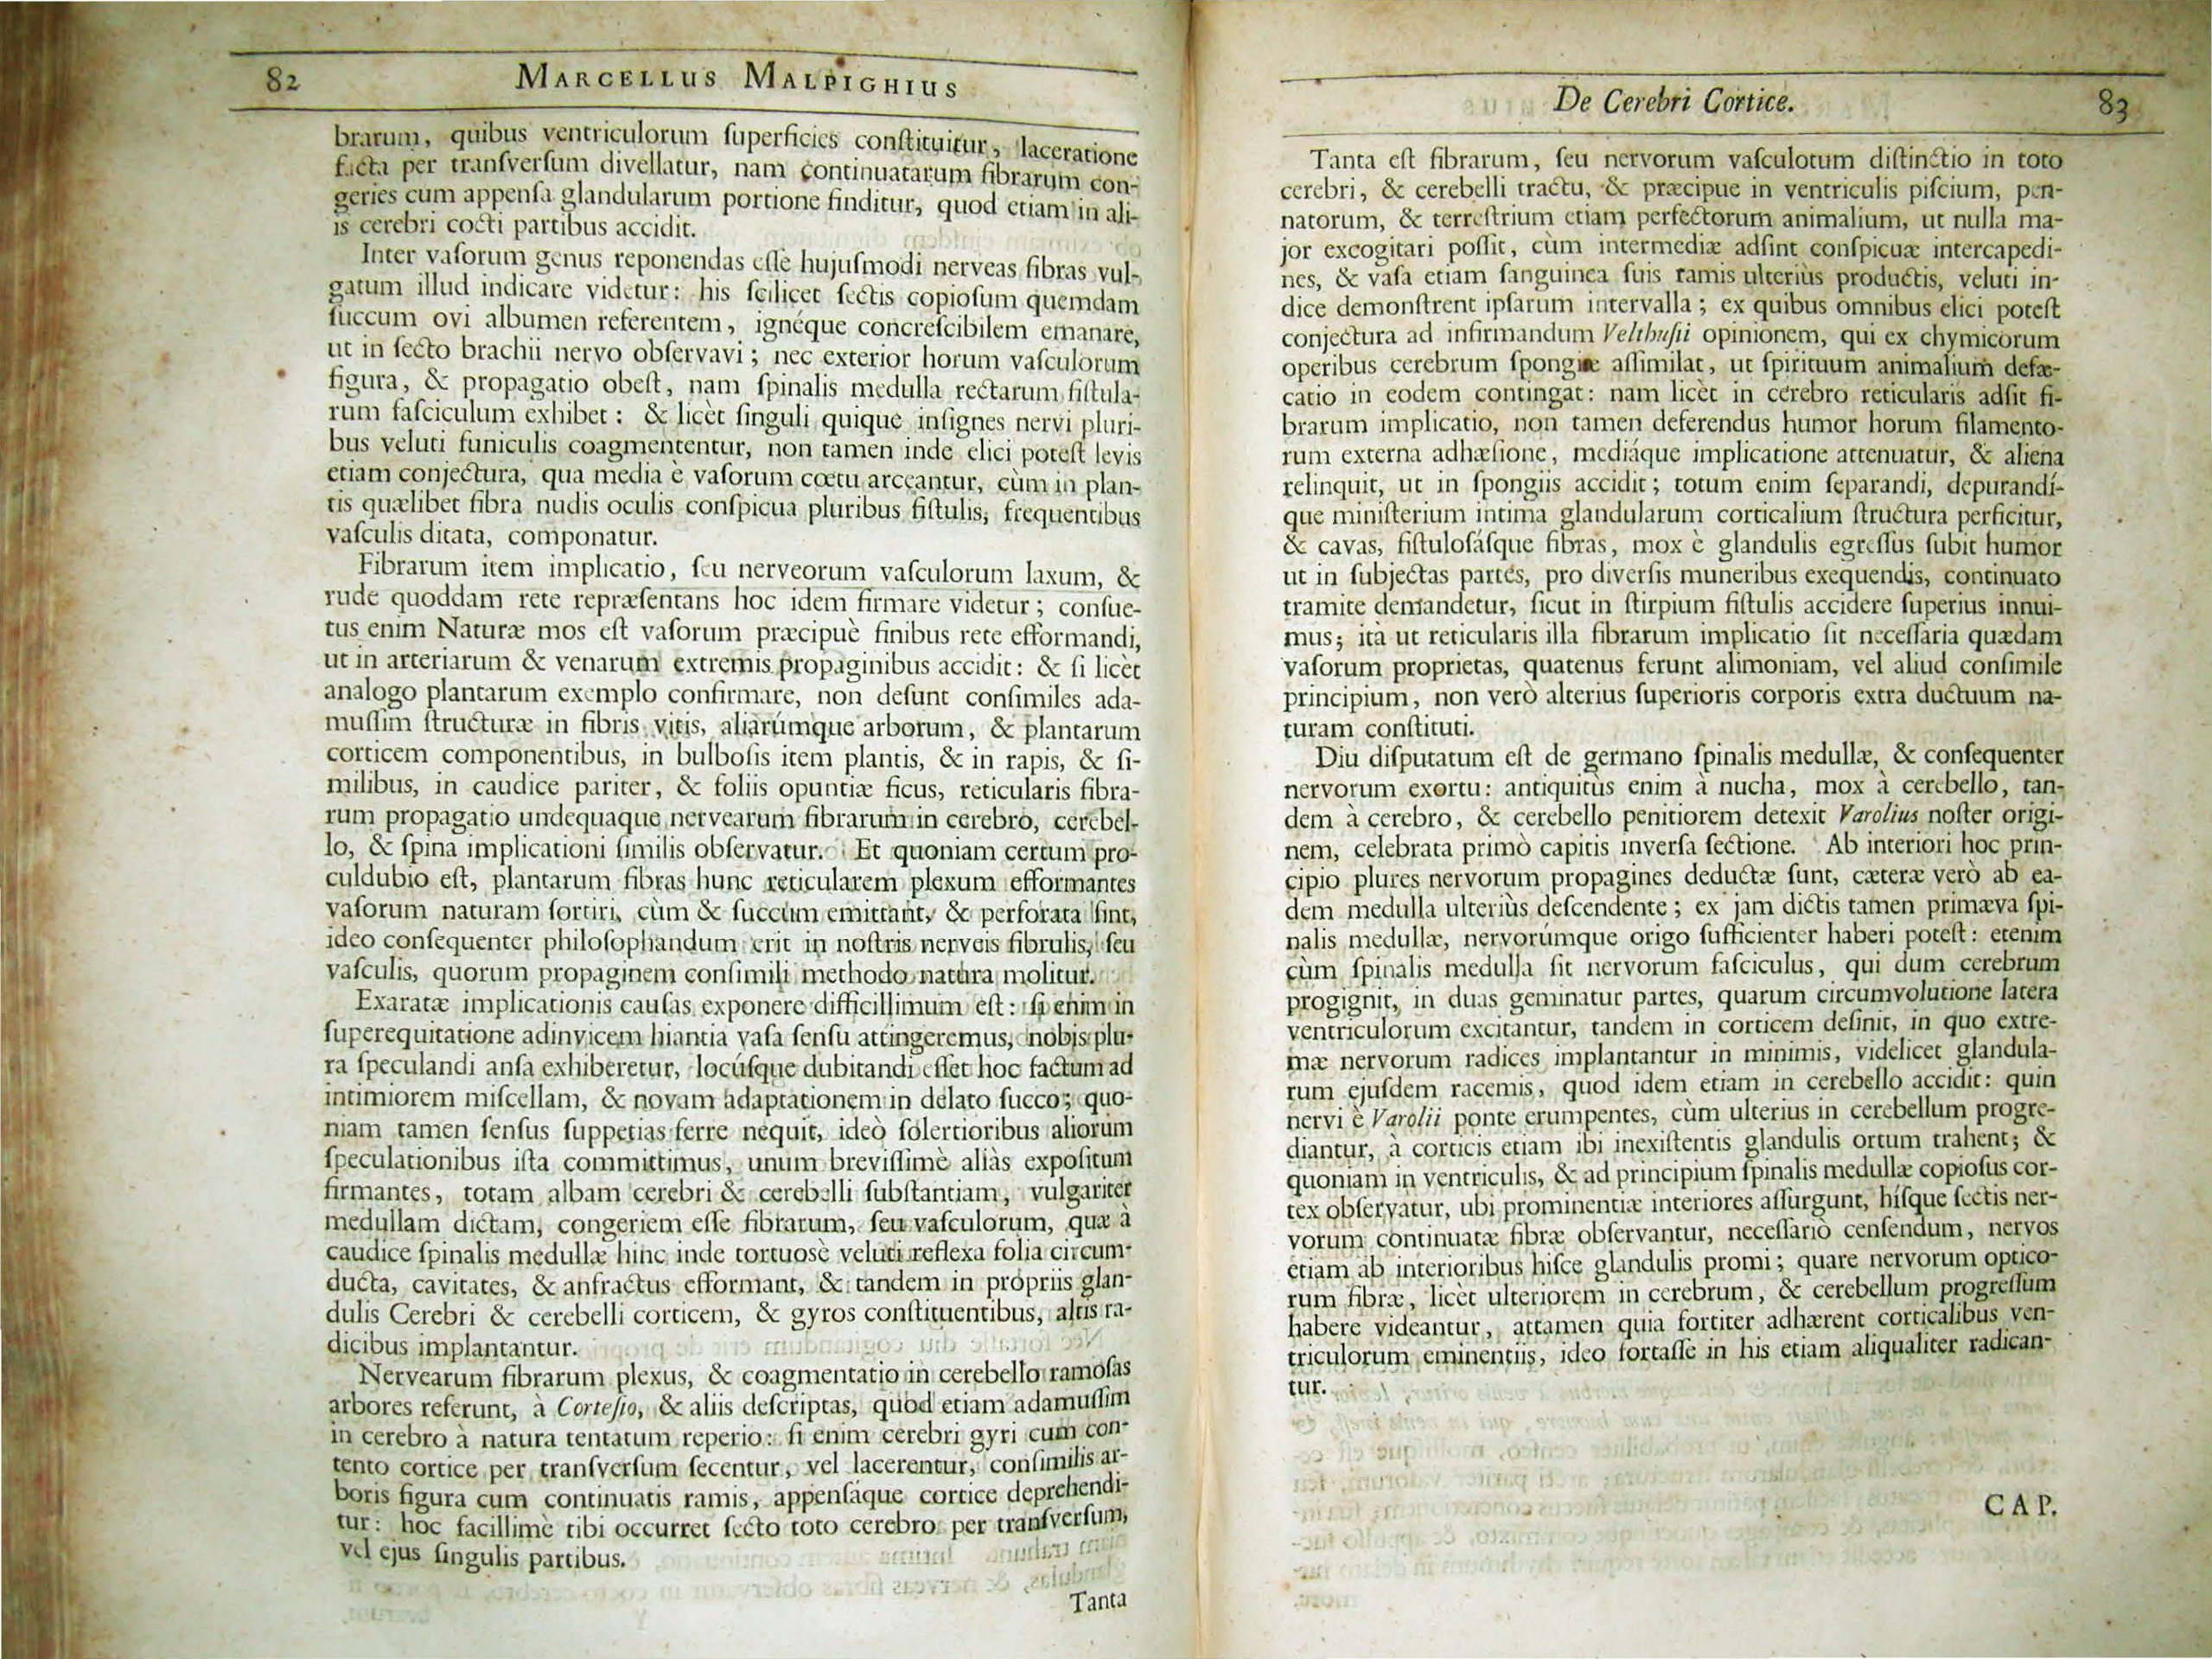 82 MARCELLUS MALPIGHIUS
brarum, quibus ventriculorum ſuperficies conſtituitur, laceratione
facta per tranſverſum divellatur, nam continuatarum fibrarum con-
geries cum appenſa glandularum portione finditur, quod etiam in ali-
is cerebri cocti partibus accidit.
Inter vaſorum genus reponendas eſſe hujuſmodi nerveas fibras vul-
gatum illud indicare videtur: his ſcilicet ſectis copioſum quemdam
ſuccum ovi albumen referentem, ignéque concreſcibilem emanare,
ut in ſecto brachii nervo obſervavi; nec exterior horum vaſculorum
figura, & propagatio obeſt, nam ſpinalis medulla rectarum fiſtula-
rum faſciculum exhibet: & licèt ſinguli quique inſignes nervi pluri-
bus veluti funiculis coagmententur, non tamen inde elici poteſt levis
etiam conjectura, qua media è vaſorum cœtu arceantur, cùm in plan-
tis quælibet fibra nudis oculis conſpicua pluribus fiſtulis, frequentibus
vaſculis ditata, componatur.
Fibrarum item implicatio, ſeu nerveorum vaſculorum laxum, &
rude quoddam rete repræſentans hoc idem firmare videtur; conſue-
tus enim Naturæ mos eſt vaſorum præcipuè finibus rete efformandi,
ut in arteriarum & venarum extremis propaginibus accidit: & ſi licèt
analogo plantarum exemplo confirmare, non deſunt conſimiles ada-
muſſim ſtructuræ in fibris vitis, aliarúmque arborum, & plantarum
corticem componentibus, in bulboſis item plantis, & in rapis, & ſi-
milibus, in caudice pariter, & foliis opuntiæ ficus, reticularis fibra-
rum propagatio undequaque nervearum fibrarum in cerebro, cerebel-
lo, & ſpina implicationi ſimilis obſervatur. Et quoniam certum pro-
culdubio eſt, plantarum fibras hunc reticularem plexum efformantes
vaſorum naturam ſortiri, cùm & ſuccum emittant, & perforata ſint,
ideo conſequenter philoſophandum erit in noſtris nerveis fibrulis, ſeu
vaſculis, quorum propaginem conſimili methodo natura molitur.
Exaratæ implicationis cauſas exponere difficillimum eſt: ſi enim in
ſuperequitatione adinvicem hiantia vaſa ſenſu attingeremus, nobis plu-
ra ſpeculandi anſa exhiberetur, locúſque dubitandi eſſet hoc factum ad
intimiorem miſcellam, & novam adaptationem in delato ſucco; quo-
niam tamen ſenſus ſuppetias ferre nequit, ideò ſolertioribus aliorum
ſpeculationibus iſta committimus, unum breviſſimè aliàs expoſitum
firmantes, totam albam cerebri & cerebelli ſubſtantiam, vulgariter
medullam dictam, congeriem eſſe fibrarum, ſeu vaſculorum, quæ à
caudice ſpinalis medullæ hinc inde tortuosè veluti reflexa folia circum-
ducta, cavitates, & anfractus efformant, & tandem in propriis glan-
dulis Cerebri & cerebelli corticem, & gyros conſtituentibus, altis ra-
dicibus implantantur.
Nervearum fibrarum plexus, & coagmentatio in cerebello ramoſas
arbores referunt, à Corteſio, & aliis deſcriptas, quod etiam adamuſſim
in cerebro à natura tentatum reperio: ſi enim cerebri gyri cum con-
tento cortice per tranſverſum ſecentur, vel lacerentur, conſimilis ar-
boris figura cum continuatis ramis, appenſáque cortice deprehendi-
tur: hoc facillimè tibi occurret ſecto toto cerebro per tranſverſum,
vel ejus ſingulis partibus.
Tanta
De Cerebri Cortice. 83
Tanta eſt fibrarum, ſeu nervorum vaſculorum diſtinctio in toto
cerebri, & cerebelli tractu, & præcipue in ventriculis piſcium, pen-
natorum, & terreſtrium etiam perfectorum animalium, ut nulla ma-
jor excogitari poſſit, cùm intermediæ adſint conſpicuæ intercapedi-
nes, & vaſa etiam ſanguinea ſuis ramis ulteriùs productis, veluti in-
dice demonſtrent ipſarum intervalla; ex quibus omnibus elici poteſt
conjectura ad infirmandum Velthuſii opinionem, qui ex chymicorum
operibus cerebrum ſpongiæ aſſimilat, ut ſpirituum animalium defæ-
catio in eodem contingat: nam licèt in cerebro reticularis adſit fi-
brarum implicatio, non tamen deferendus humor horum filamento-
rum externa adhæſione, mediáque implicatione attenuatur, & aliena
relinquit, ut in ſpongiis accidit; totum enim ſeparandi, depurandí-
que miniſterium intima glandularum corticalium ſtructura perficitur,
& cavas, fiſtuloſáſque fibras, mox è glandulis egreſſus ſubit humor
ut in ſubjectas partes, pro diverſis muneribus exequendis, continuato
tramite demandetur, ſicut in ſtirpium fiſtulis accidere ſuperius innui-
mus; ità ut reticularis illa fibrarum implicatio ſit neceſſaria quædam
vaſorum proprietas, quatenus ferunt alimoniam, vel aliud conſimile
principium, non verò alterius ſuperioris corporis extra ductuum na-
turam conſtituti.
Diu diſputatum eſt de germano ſpinalis medullæ, & conſequenter
nervorum exortu: antiquitùs enim à nucha, mox à cerebello, tan-
dem à cerebro, & cerebello penitiorem detexit Varolius noſter origi-
nem, celebrata primò capitis inverſa ſectione. Ab interiori hoc prin-
cipio plures nervorum propagines deductæ ſunt, cæteræ verò ab ea-
dem medulla ulteriùs deſcendente; ex jam dictis tamen primæva ſpi-
nalis medullæ, nervorúmque origo ſufficienter haberi poteſt: etenim
cùm ſpinalis medulla ſit nervorum faſciculus, qui dum cerebrum
progignit, in duas geminatur partes, quarum circumvolutione latera
ventriculorum excitantur, tandem in corticem definit, in quo extre-
mæ nervorum radices implantantur in minimis, videlicet glandula-
rum ejuſdem racemis, quod idem etiam in cerebello accidit: quin
nervi è Varolii ponte erumpentes, cùm ulterius in cerebellum progre-
diantur, à corticis etiam ibi inexiſtentis glandulis ortum trahent; &
quoniam in ventriculis, & ad principium ſpinalis medullæ copioſus cor-
tex obſervatur, ubi prominentiæ interiores aſſurgunt, híſque ſectis ner-
vorum continuatæ fibræ obſervantur, neceſſariò cenſendum, nervos
etiam ab interioribus hiſce glandulis promi; quare nervorum optico-
rum fibræ, licèt ulteriorem in cerebrum, & cerebellum progreſſum
habere videantur, attamen quia fortiter adhærent corticalibus ven-
triculorum eminentiis, ideo fortaſſe in his etiam aliqualiter radican-
tur.
CAP.